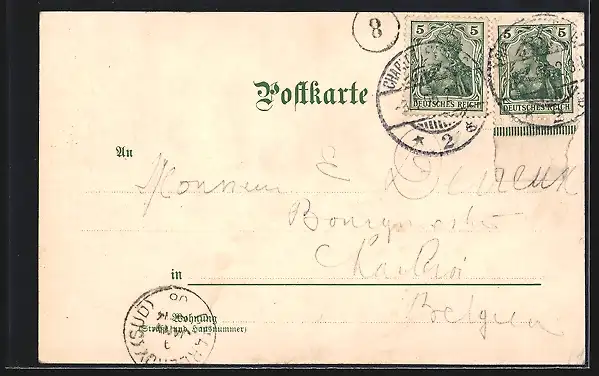 8
5 5 5 5
DEUTSCHES REICH DEUTSCHES REICH
Postkarte
* 2 *
An
Monsieur E
Bourgmestre
Charleroi
in
Belgique
Wohnung
(Straße und Hausnummer)
(SUD)